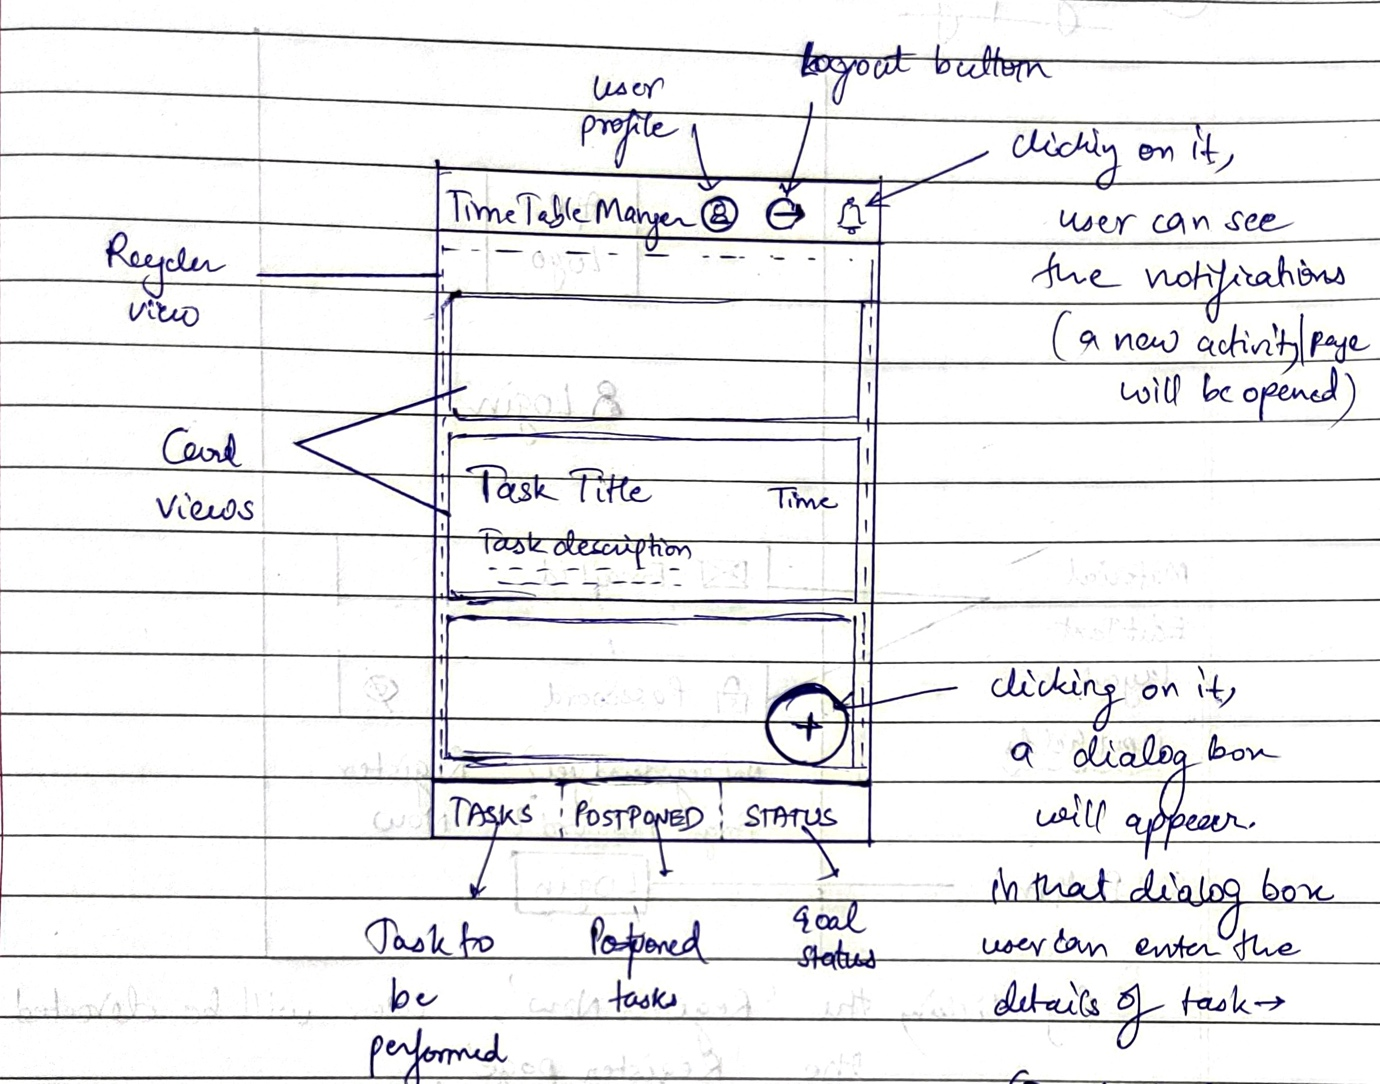 Logout button
user
profile
clicking on it,
user can see
the notifications
(a new activity/page
will be opened)
TimeTable Manger
Recycler
view
Card
views
Task Title
Time
Task description
+
clicking on it,
a dialog box
will appear.
in that dialog box
user can enter the
details of task →
TASKS
POSTPONED
STATUS
Task to
be
performed
Postponed
tasks
goal
status
Logo
Login
Password
Register